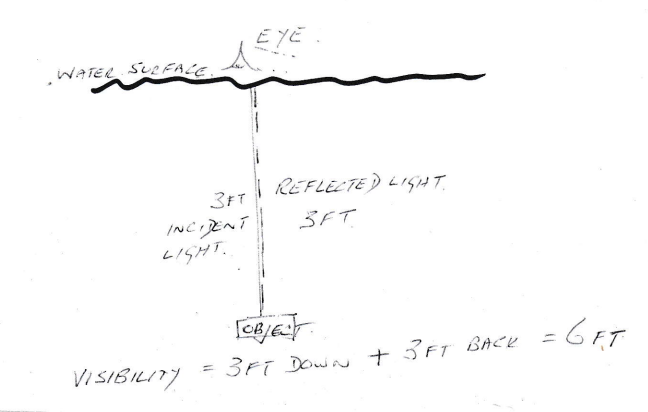 EYE.
WATER SURFACE.
3FT
INCIDENT
LIGHT.
REFLECTED LIGHT.
3FT.
OBJECT.
VISIBILITY = 3FT DOWN + 3FT BACK = 6FT